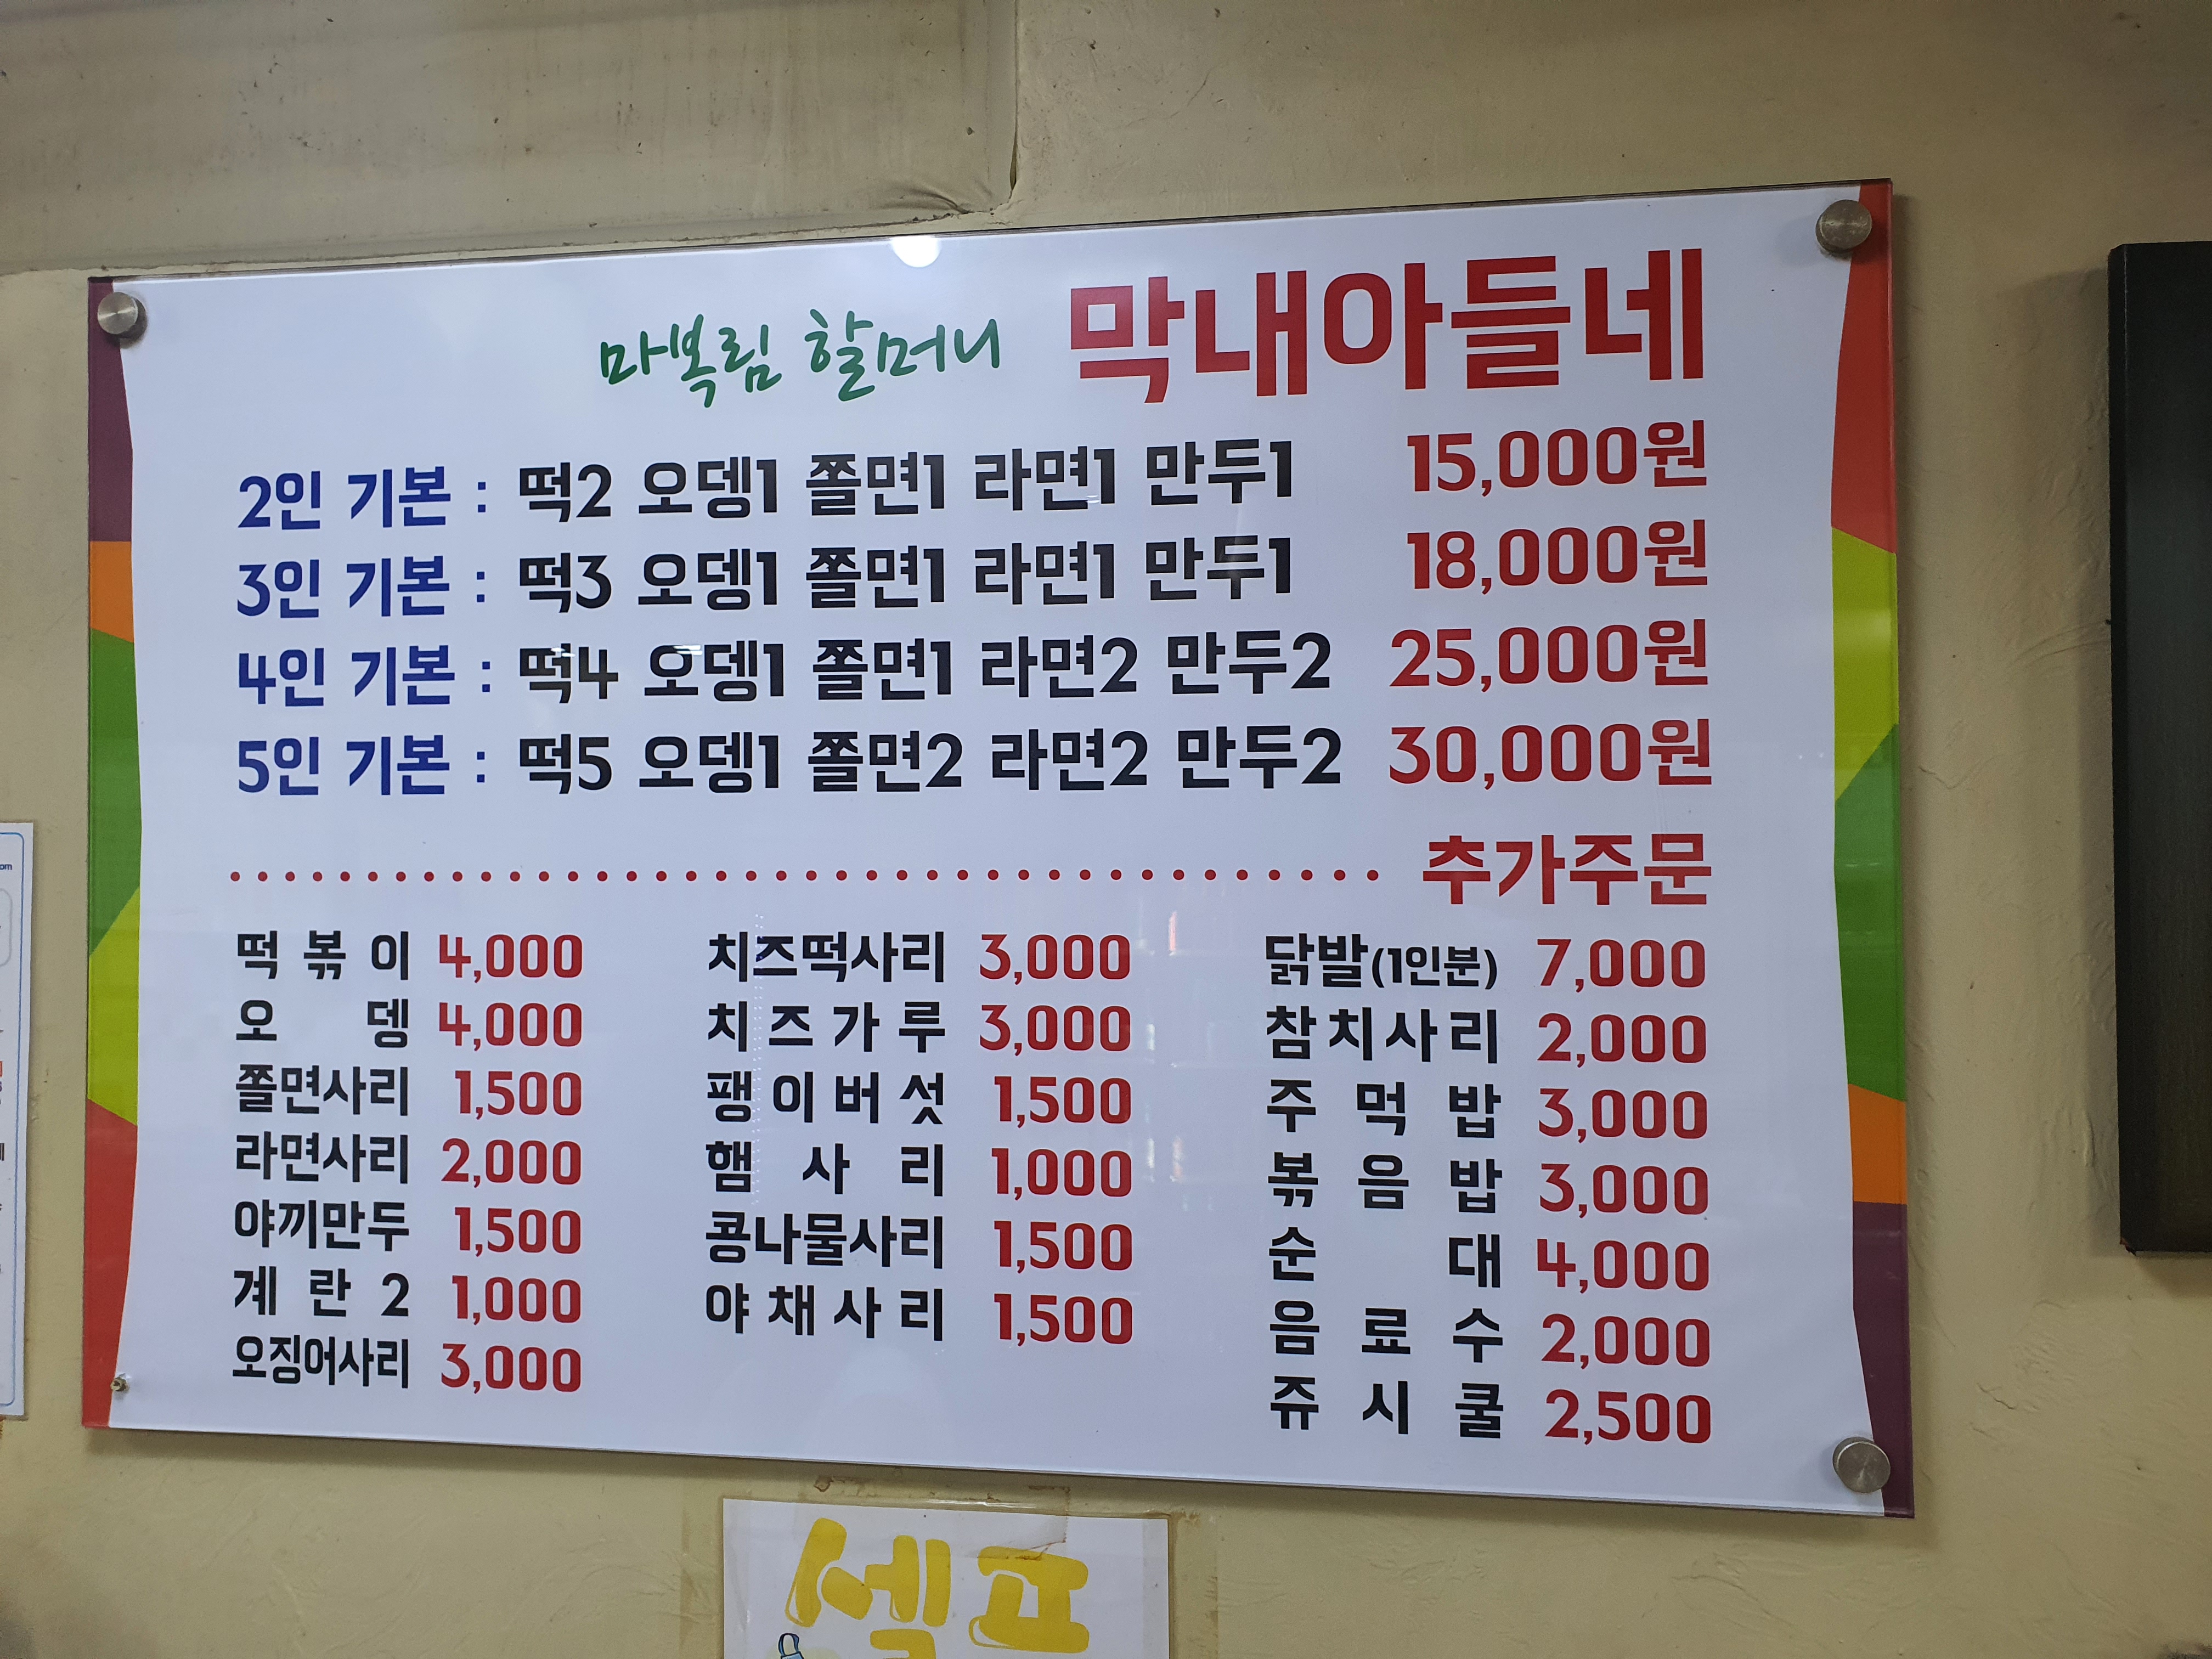 마복림 할머니 막내아들네
2인 기본 : 떡2 오뎅1 쫄면1 라면1 만두1 15,000원
3인 기본 : 떡3 오뎅1 쫄면1 라면1 만두1 18,000원
4인 기본 : 떡4 오뎅1 쫄면1 라면2 만두2 25,000원
5인 기본 : 떡5 오뎅1 쫄면2 라면2 만두2 30,000원
추가주문
떡볶이 4,000
오뎅 4,000
쫄면사리 1,500
라면사리 2,000
야끼만두 1,500
계란2 1,000
오징어사리 3,000
치즈떡사리 3,000
치즈가루 3,000
팽이버섯 1,500
햄사리 1,000
콩나물사리 1,500
야채사리 1,500
닭발(1인분) 7,000
참치사리 2,000
주먹밥 3,000
볶음밥 3,000
순대 4,000
음료수 2,000
쥬시쿨 2,500
셀프